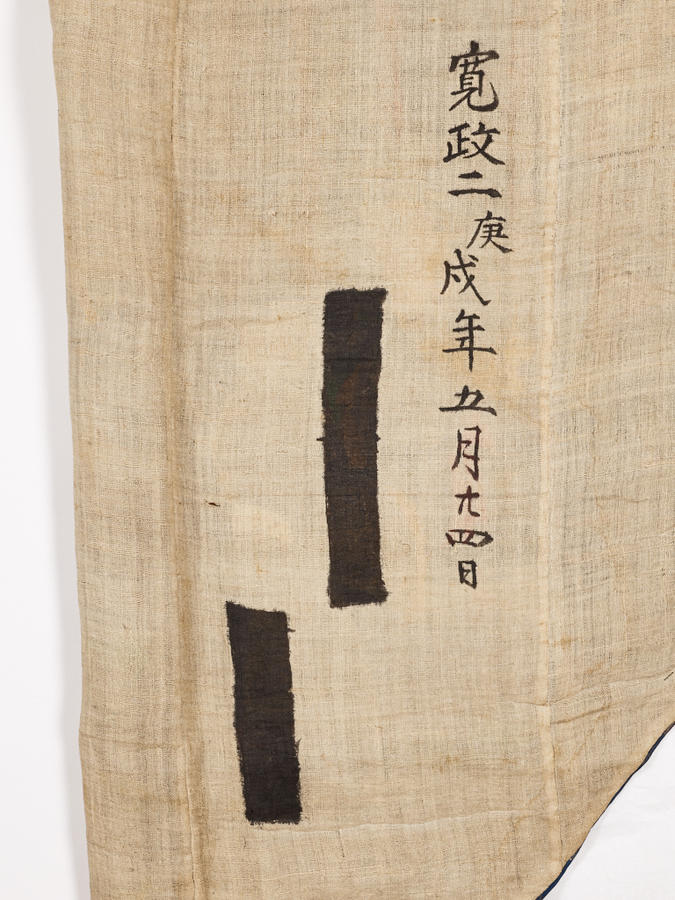 寛政二庚戌年五月廿四日